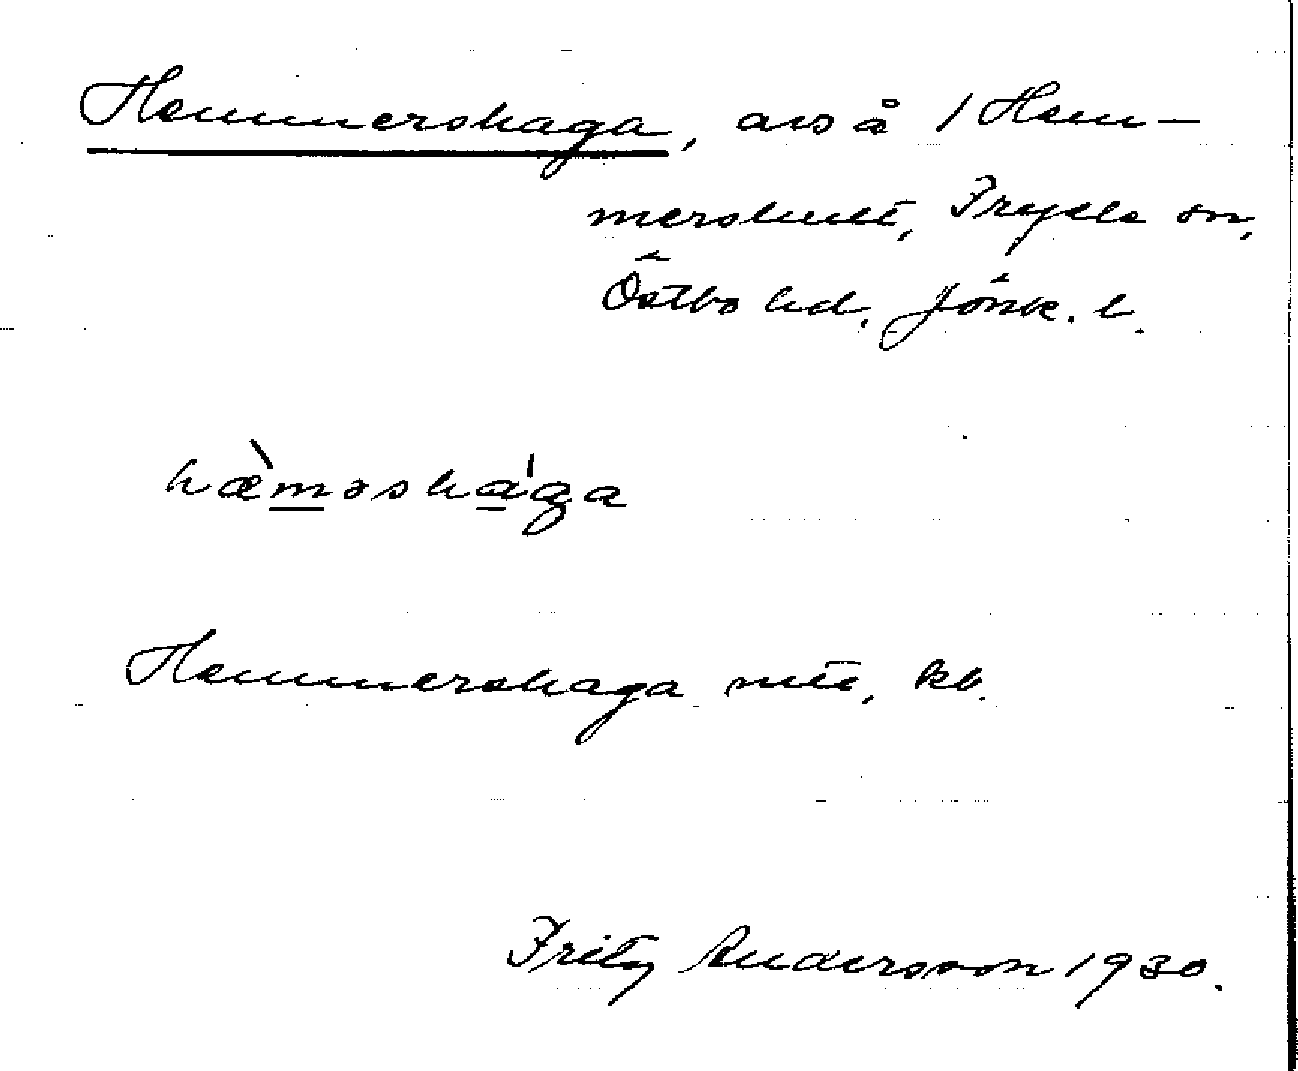 Hemmershaga, avs å 1 Hem-
mershult, Fryele sn,
Östbo hd. Jönk. l.
hæ̀məshága
Hemmershaga mtt, kb.
Fritz Andersson 1930.